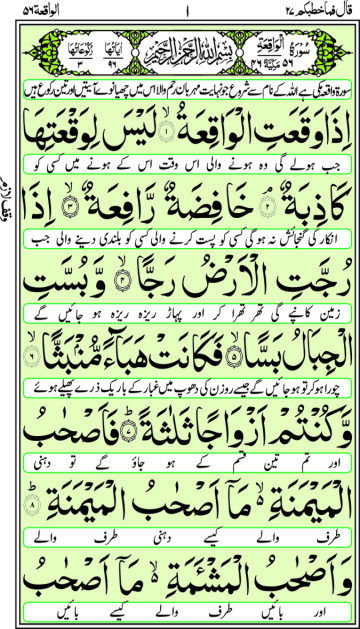 قال فما خطبکم ۲۷ ۱ الواقعة ۵۶
سُوْرَةُ الْوَاقِعَةِ ۵۶ بِسْمِ اللّٰهِ الرَّحْمٰنِ الرَّحِيْمِ اٰیَاتُهَا ۹۶ رُكُوْعَاتُهَا ۳
سورۃ واقعہ مکی ہے اللہ کے نام سے شروع جو نہایت مہربان رحم والا اس میں چھیانوے آیتیں اور تین رکوع ہیں
اِذَا وَقَعَتِ الْوَاقِعَةُ ۙ۱ لَيْسَ لِوَقْعَتِهَا
جب ہولے گی وہ ہونے والی اس وقت اس کے ہونے میں کسی کو
كَاذِبَةٌ ۘ۲ خَافِضَةٌ رَّافِعَةٌ ۙ۳ اِذَا
وقف لازم
انکار کی گنجائش نہ ہوگی کسی کو پست کرنے والی کسی کو بلندی دینے والی جب
رُجَّتِ الْاَرْضُ رَجًّا ۙ۴ وَّ بُسَّتِ
زمین کانپے گی تھر تھرا کر اور پہاڑ ریزہ ریزہ ہو جائیں گے
الْجِبَالُ بَسًّا ۙ۵ فَكَانَتْ هَبَآءً مُّنْۢبَثًّا ۙ۶
چورا ہوکر تو ہوجائیں گے جیسے روزن کی دھوپ میں غبار کے باریک ذرے پھیلے ہوئے
وَّ كُنْتُمْ اَزْوَاجًا ثَلٰثَةً ؕ۷ فَاَصْحٰبُ
اور تم تین قسم کے ہو جاؤ گے تو دہنی
الْمَيْمَنَةِ ۙ۬ مَاۤ اَصْحٰبُ الْمَيْمَنَةِ ؕ۸
طرف والے کیسے دہنی طرف والے
وَ اَصْحٰبُ الْمَشْـَٔمَةِ ۙ۬ مَاۤ اَصْحٰبُ
اور بائیں طرف والے کیسے بائیں